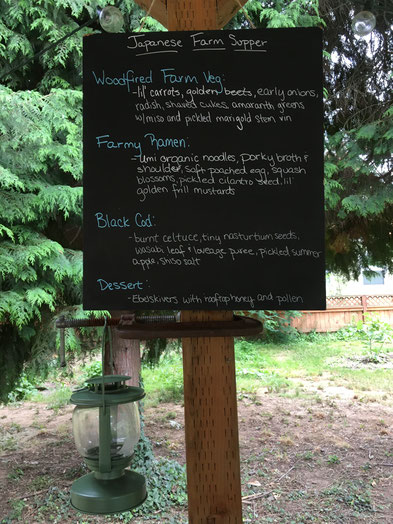 Japanese Farm Supper
Woodfired Farm Veg:
-lil' carrots, golden beets, early onions,
radish, shaved cukes, amaranth greens
w/miso and pickled marigold stem vin
Farmy Ramen:
-Umi organic noodles, porky broth &
shoulder, soft poached egg, squash
blossoms, pickled cilantro seed, lil
golden frill mustards
Black Cod:
-burnt celtuce, tiny nasturtium seeds,
wasabi leaf & lovage puree, pickled summer
apple, shiso salt
Dessert:
-Ebelskivers with rooftop honey and pollen